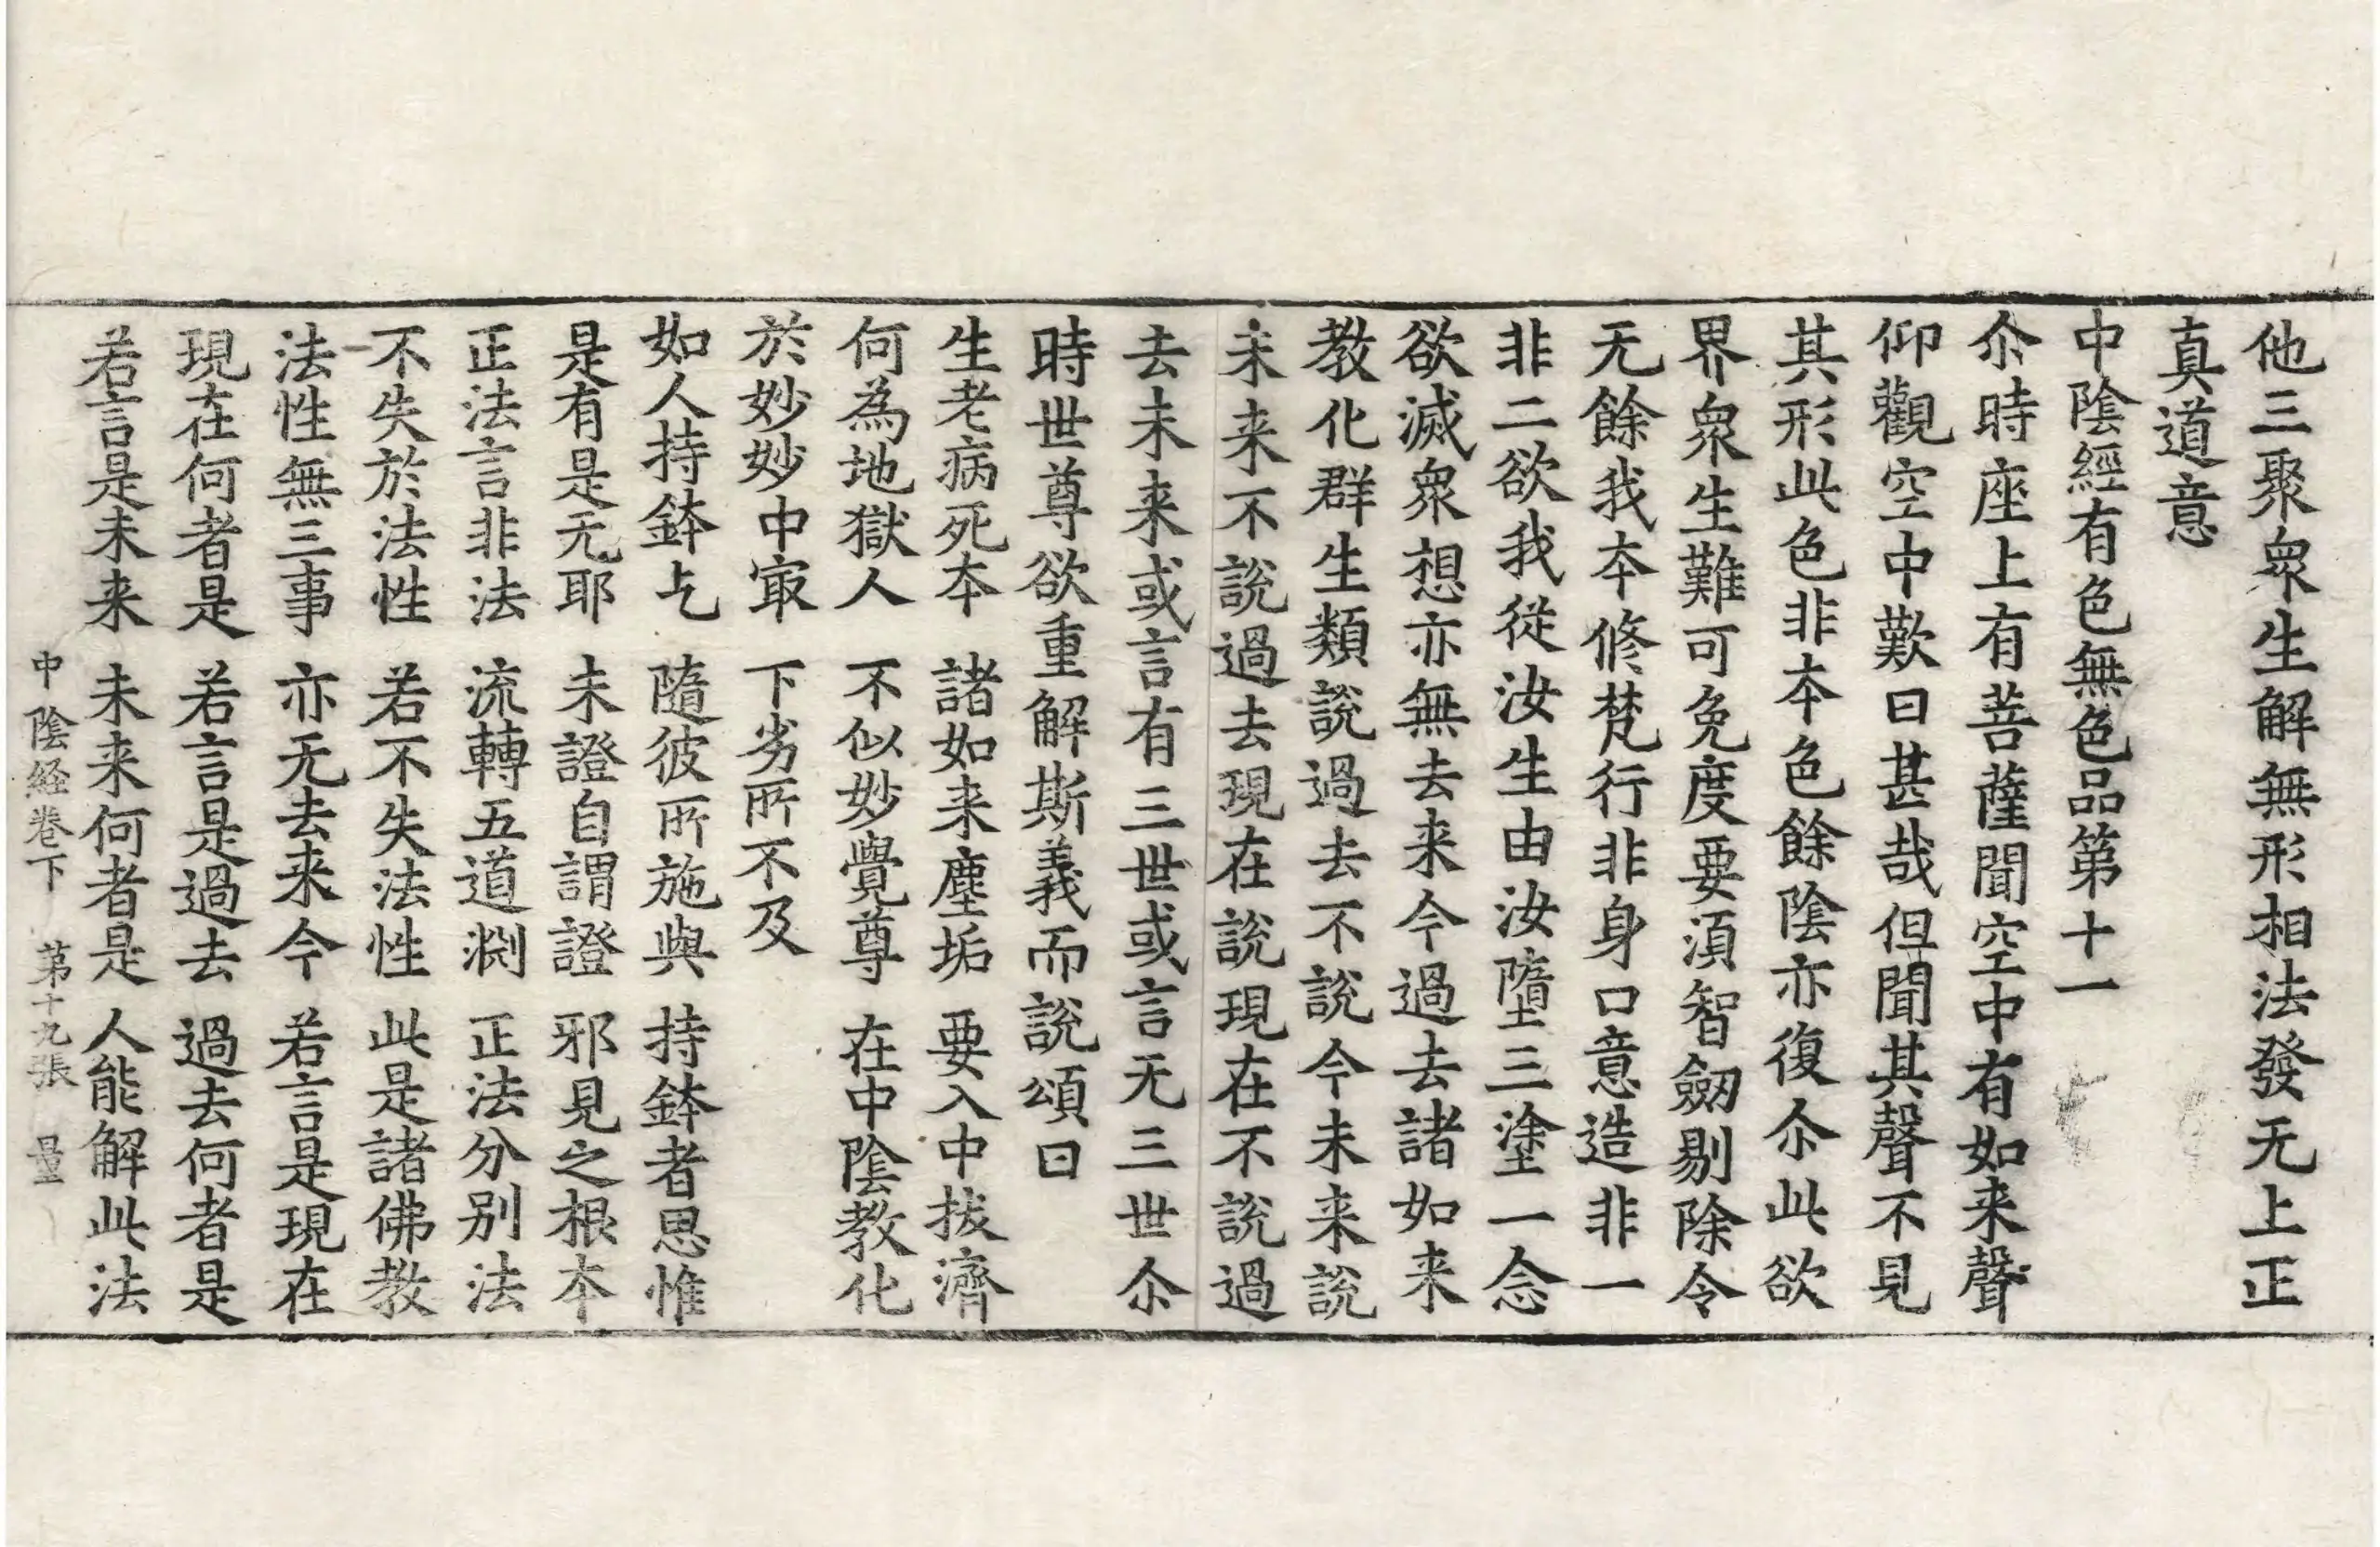 他三聚衆生解無形相法發无上正
真道意
中陰經有色無色品第十一
尒時座上有菩薩聞空中有如来聲
仰觀空中歎曰甚哉但聞其聲不見
其形此色非本色餘陰亦復尒此欲
界衆生難可免度要湏智劒剔除令
无餘我本修梵行非身口意造非一
非二欲我從汝生由汝墮三塗一念
欲滅衆想亦無去来今過去諸如来
教化群生類說過去不說今未来說
未来不說過去現在說現在不說過
去未来或言有三世或言无三世尒
時世尊欲重解斯義而說頌曰
生老病死本　諸如来塵垢　要入中拔濟
何為地獄人　不似妙覺尊　在中陰教化
於妙妙中㝡　下劣所不及
如人持鉢乞　隨彼所施與　持鉢者思惟
是有是无耶　未證自謂證　邪見之根本
正法言非法　流轉五道渕　正法分別法
不失於法性　若不失法性　此是諸佛教
法性無三事　亦无去来今　若言是現在
現在何者是　若言是過去　過去何者是
若言是未来　未来何者是　人能解此法
中陰经卷下　第十九張